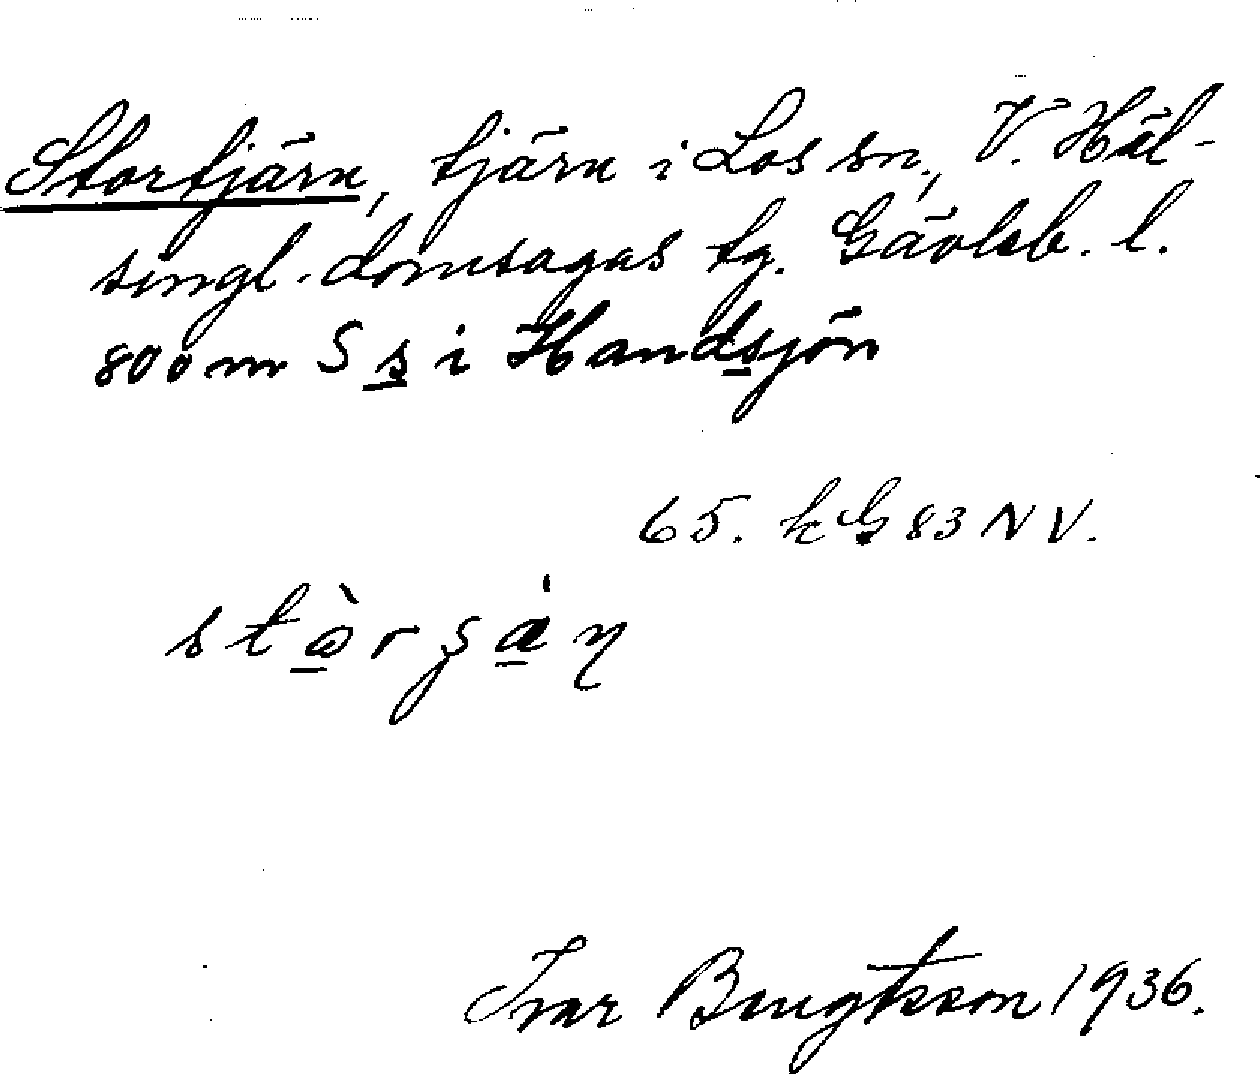 Stortjärn, tjärn i Los sn, V. Häl-
singl. domsagas tg. Gävleb. l.
800 m S s i Handsjön
65. k G 83 NV.
Ivar Bengtsson 1936.